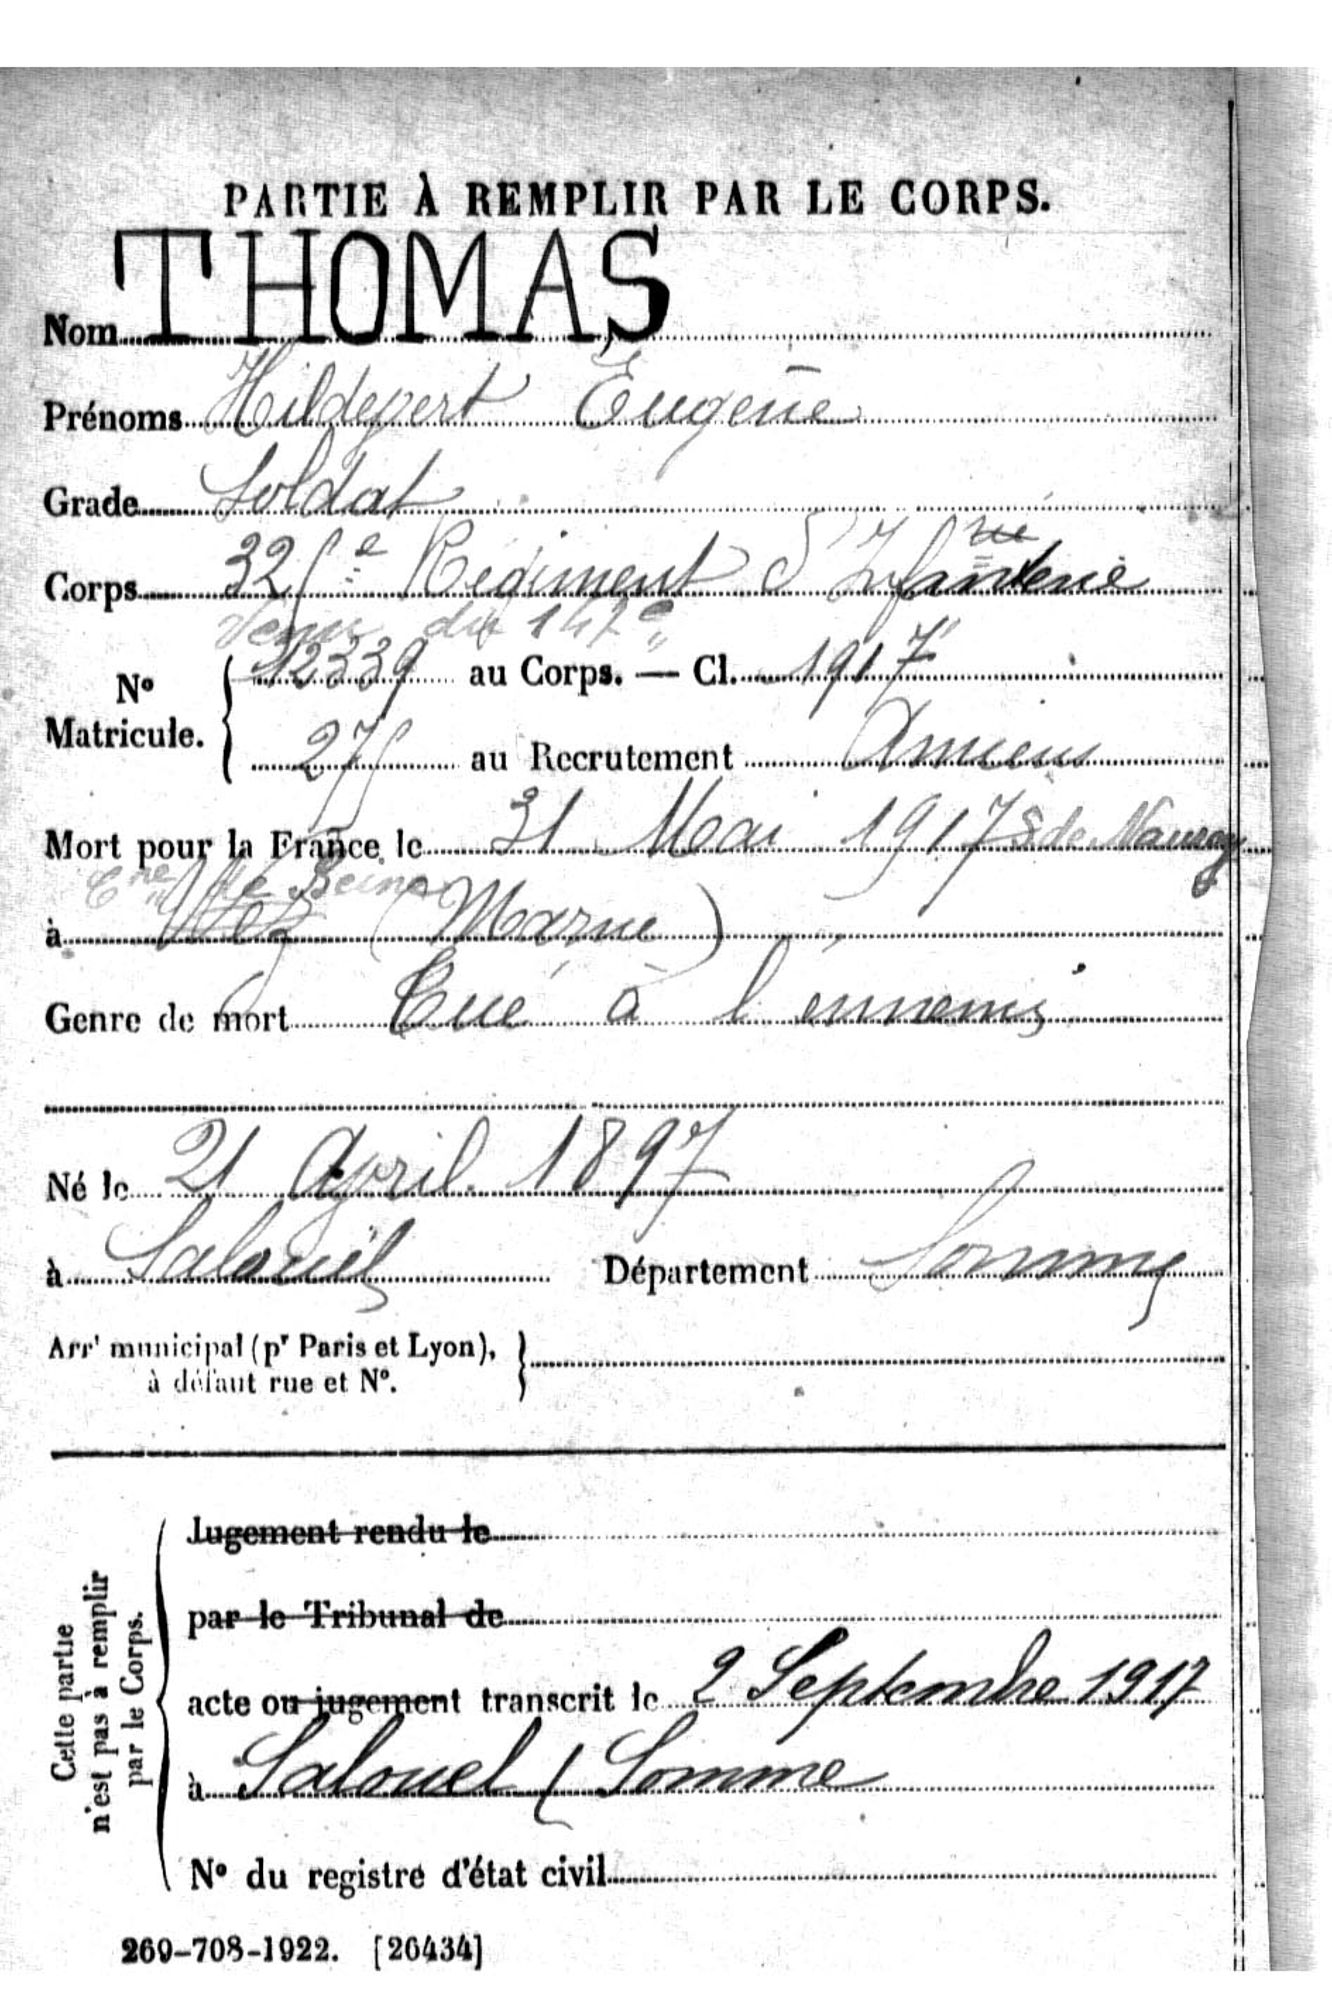 PARTIE À REMPLIR PAR LE CORPS.
Nom THOMAS
Prénoms Hildevert Eugène
Grade Soldat
Corps 325e Régiment d'Infanterie
Venu du 147e
No Matricule. 12339 au Corps. — Cl. 1917
275 au Recrutement Amiens
Mort pour la France le 31 Mai 1917 S. de Nauroy
Cne de Beine
à (Marne)
Genre de mort Tué à l'ennemi
Né le 21 Avril 1897
à Salouël Département Somme
Arrt municipal (pr Paris et Lyon),
à défaut rue et No.
Cette partie
n'est pas à remplir
par le Corps.
Jugement rendu le
par le Tribunal de
acte ou jugement transcrit le 2 Septembre 1917
à Salouel (Somme
No du registre d'état civil
269-708-1922. [26434]